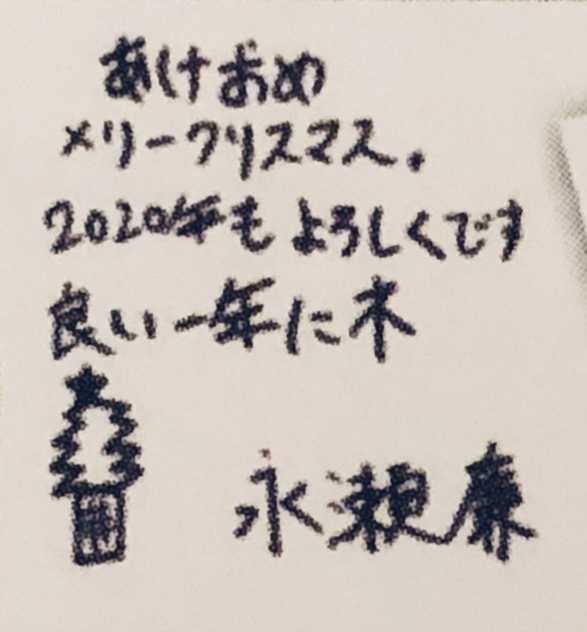 あけおめ
メリークリスマス.
2020年もよろしくです
良い一年に木
永瀬廉